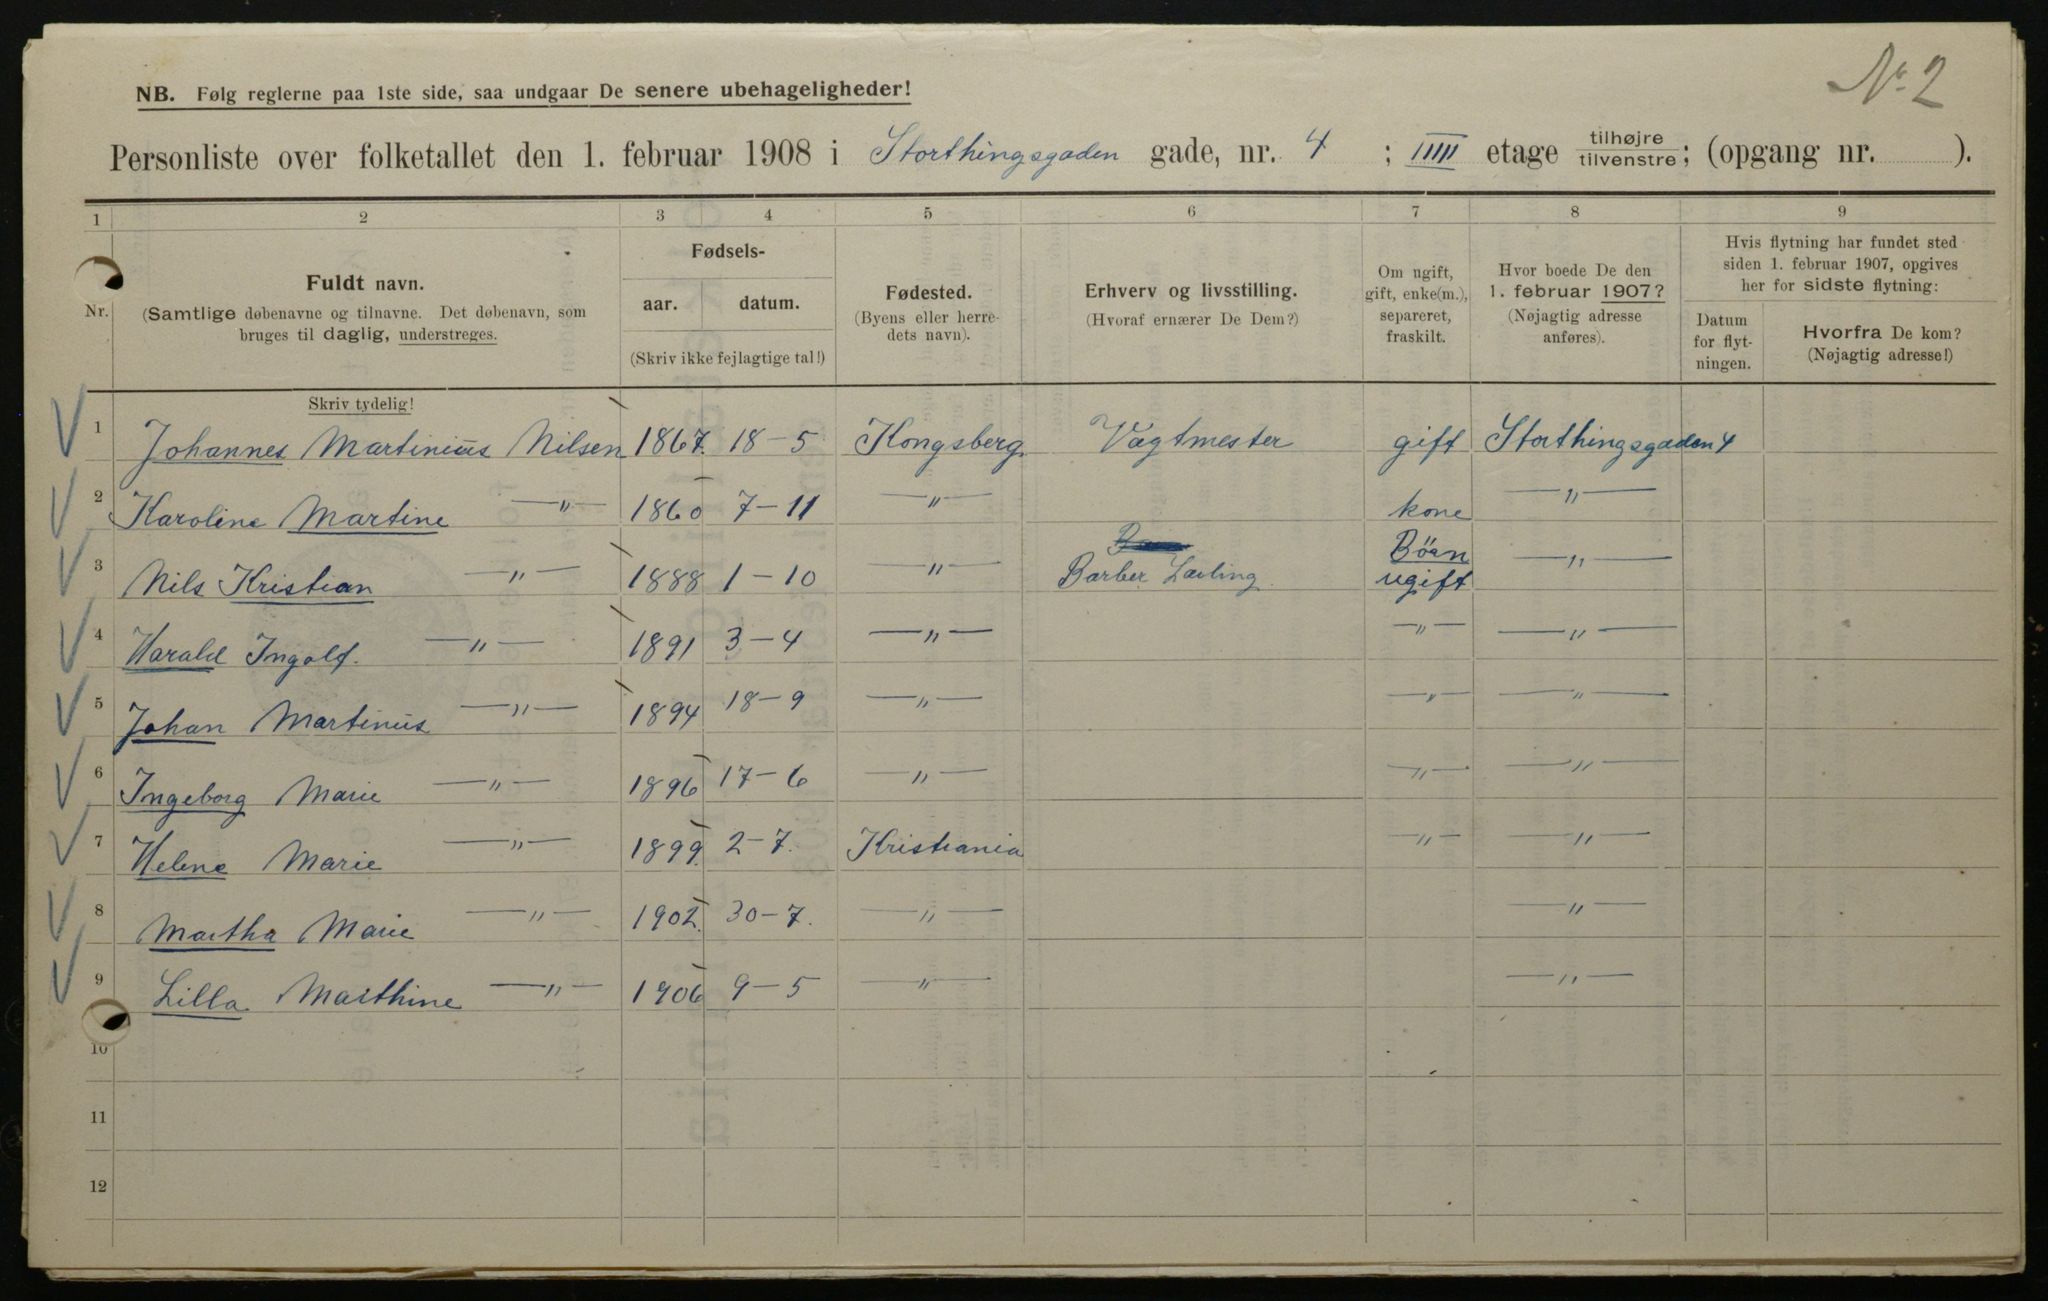 No. 2
NB. Følg reglerne paa 1ste side, saa undgaar De senere ubehageligheder!
Personliste over folketallet den 1. februar 1908 i Storthingsgaden gade, nr. 4 ; IIIII etage tilhøjre tilvenstre; (opgang nr. ).
1 2 3 4 5 6 7 8 9
Nr.
Fuldt navn.
(Samtlige døbenavne og tilnavne. Det døbenavn, som
bruges til daglig, understreges.
Fødsels-
aar. datum.
(Skriv ikke fejlagtige tal!)
Fødested.
(Byens eller herre-
dets navn).
Erhverv og livsstilling.
(Hvoraf ernærer De Dem?)
Om ugift,
gift, enke(m.),
separeret,
fraskilt.
Hvor boede De den
1. februar 1907?
(Nøjagtig adresse
anføres).
Hvis flytning har fundet sted
siden 1. februar 1907, opgives
her for sidste flytning:
Datum
for flyt-
ningen.
Hvorfra De kom?
(Nøjagtig adresse!)
Skriv tydelig!
1 Johannes Martinius Nilsen 1867. 18-5 Kongsberg Vagtmester gift Storthingsgaden 4
2 Karoline Martine —"— 1860 7-11 —"— kone —"—
Børn
3 Nils Kristian —"— 1888 1-10 —"— Barber Lærling. ugift —"—
4 Harald Ingolf. —"— 1891 3-4 —"— —"— —"—
5 Johan Martinus —"— 1894 18-9 —"— —"— —"—
6 Ingeborg Marie —"— 1896 17-6 —"— —"— —"—
7 Helene Marie —"— 1899. 2-7. Kristiania —"— —"—
8 Martha Marie —"— 1902. 30-7. —"— —"—
9 Lilla Marthine —"— 1906 9-5 —"— —"—
10
11
12